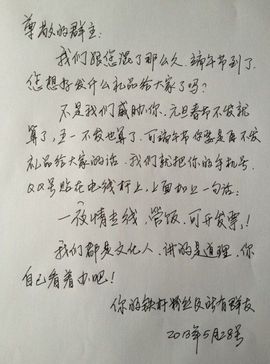 尊敬的群主:
我们跟您混了那么久,端午节到了,
您想好发什么礼品给大家了吗?
不是我们威胁你,元旦春节不发就
算了,五一不发也算了,可端午节你要是再不发
礼品给大家的话,我们就把你的手机号、
QQ号贴在电线杆上,上面加上一句话:
一夜情专线,管饭,可开发票!
我们都是文化人,讲的是道理,你
自己看着办吧!
你的铁杆粉丝及所有群友
2013年5月28号